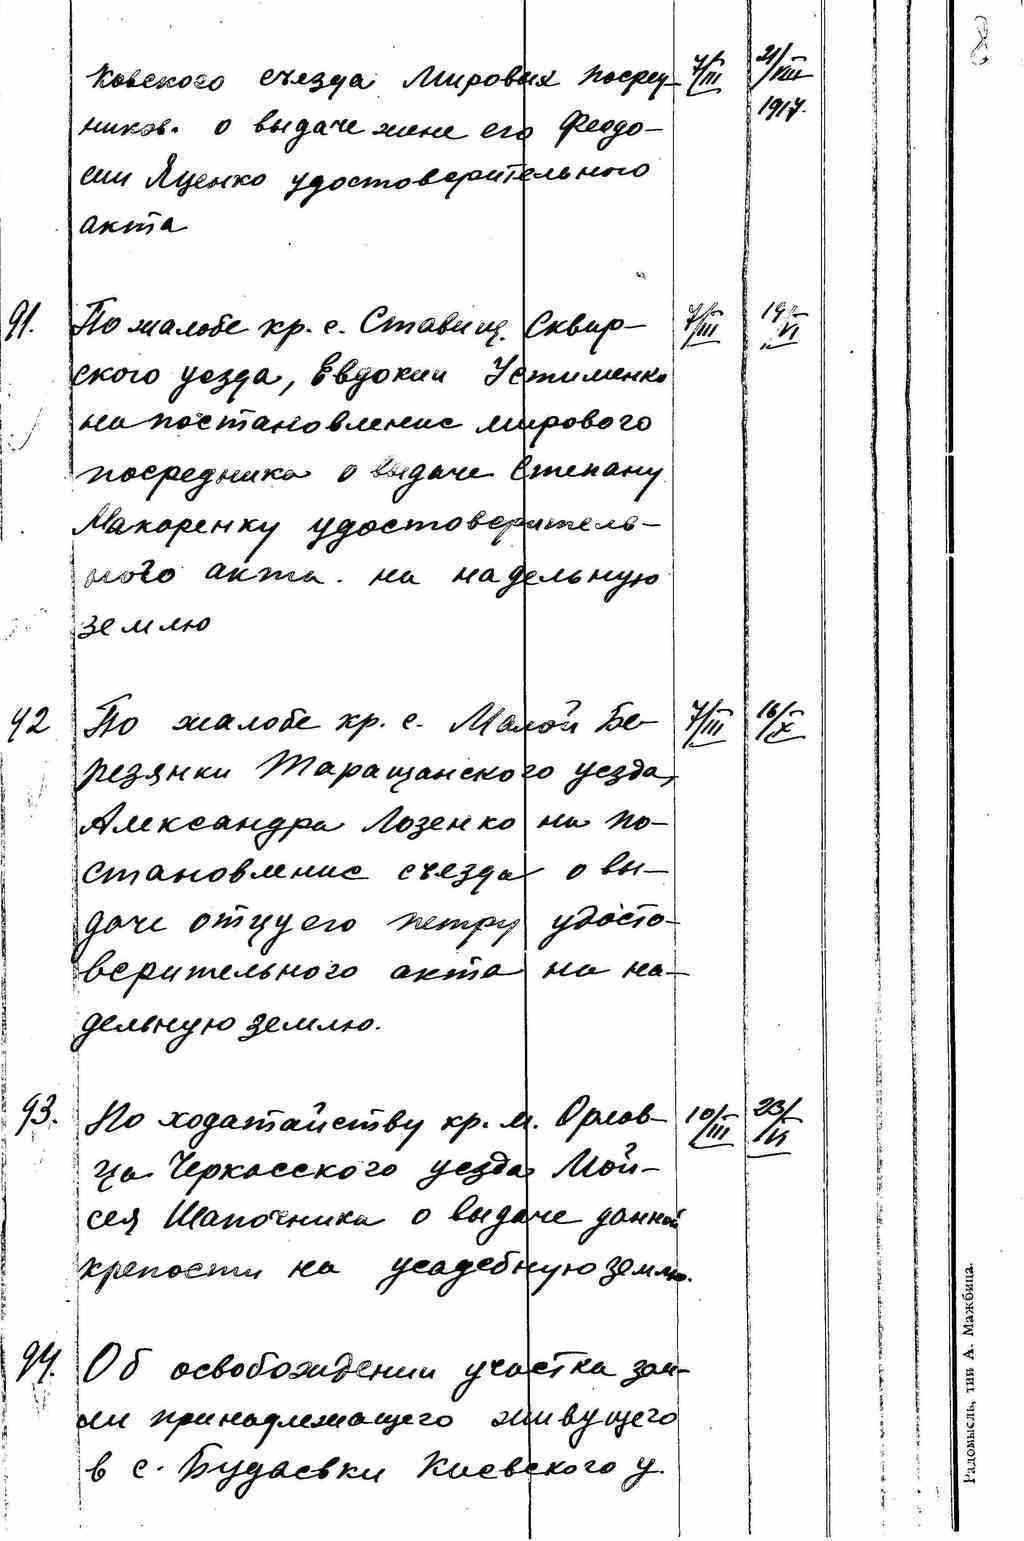 ковского съезда Мировых посред- 7/III 21/VIII
ников о выдаче жене его Феодо- 1917.
сии Яценко удостоверительного
акта
91. По жалобе кр. с. Ставищ Сквир- 7/III 19/VI
ского уезда, Евдокии Устименко
на постановление мирового
посредника о выдаче Степану
Макаренку удостоверитель-
ного акта на надельную
землю
92 По жалобе кр. с. Малой Бе- 7/III 16/X
резянки Таращанского уезда,
Александра Лозенко на по-
становление съезда о вы-
даче отцу его Петру удосто-
верительного акта на на-
дельную землю.
93. По ходатайству кр. м. Орлов- 10/III 23/VI
ца Черкасского уезда Мой-
сея Шапочника о выдаче данной
крепости на усадебную землю.
94. Об освобождении участка зем-
ли принадлежащего живущего
в с. Будаевки Киевского у.
Радомысль, тип А. Мажбица.